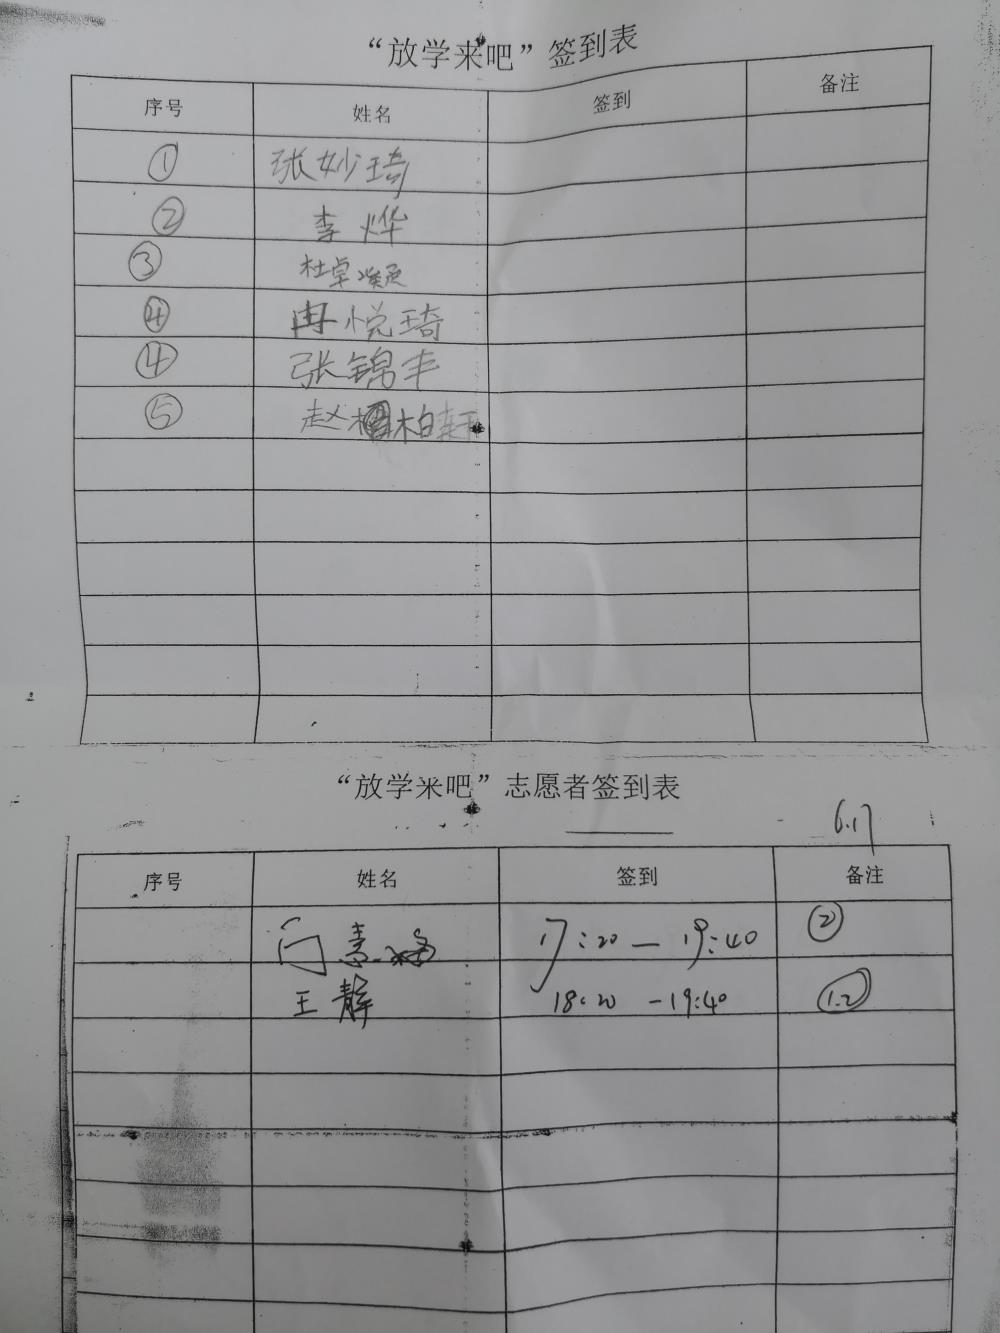 “放学来吧”签到表
序号 姓名 签到 备注
① 张妙琦
② 李烨
③ 杜卓凝
④ 冉悦琦
④ 张锦丰
⑤ 赵柏轩
“放学来吧”志愿者签到表
6.17
序号 姓名 签到 备注
闫慧 17:20—19:40 ②
王静 18:20—19:40 1.2